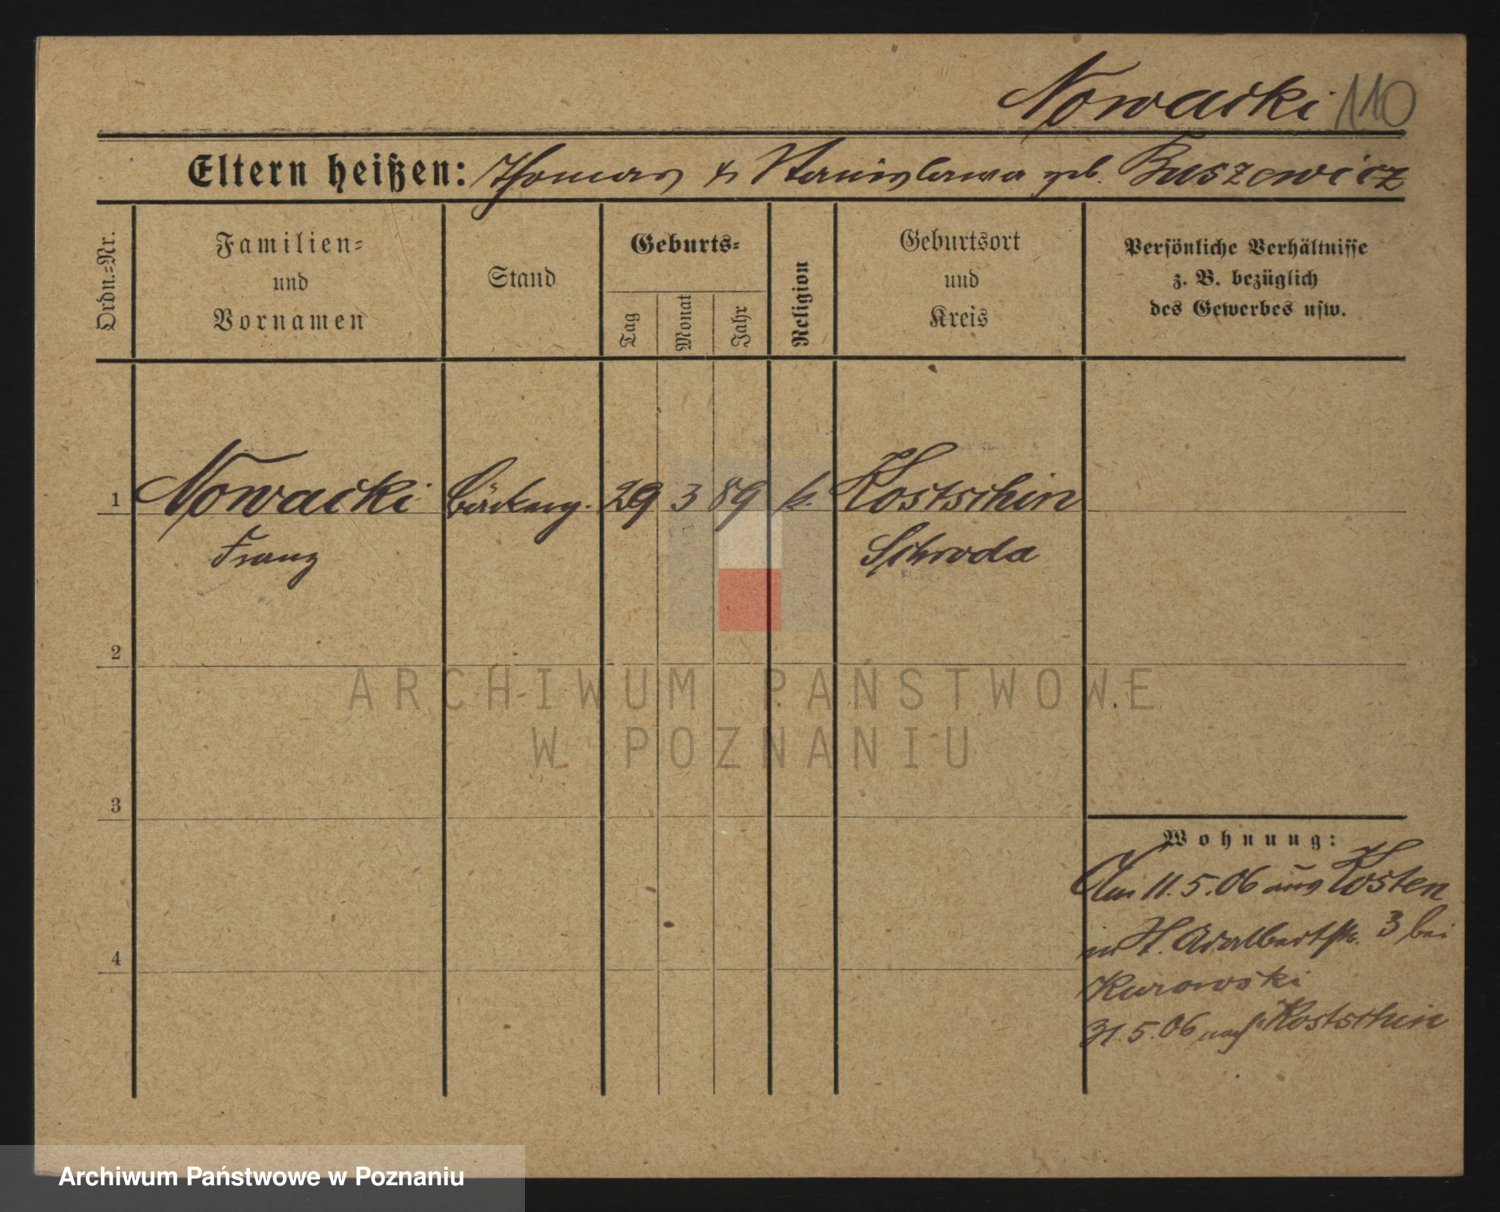 Nowacki 110
Eltern heißen: Thomas & Stanislawa geb. Buszewicz
Ordn.-Nr.
Familien-
und
Vornamen
Stand
Geburts-
Tag
Monat
Jahr
Religion
Geburtsort
und
Kreis
Persönliche Verhältnisse
z. B. bezüglich
des Gewerbes usw.
1 Nowacki Bäckerg. 29 3 89 k. Kostschin
Franz Schroda
2
3
4
Wohnung:
Am 11.5.06 aus Kosten
in H. Adalbertstr. 3 bei
Kurowski
31.5.06 nach Kostschin
ARCHIWUM PAŃSTWOWE
W POZNANIU
Archiwum Państwowe w Poznaniu